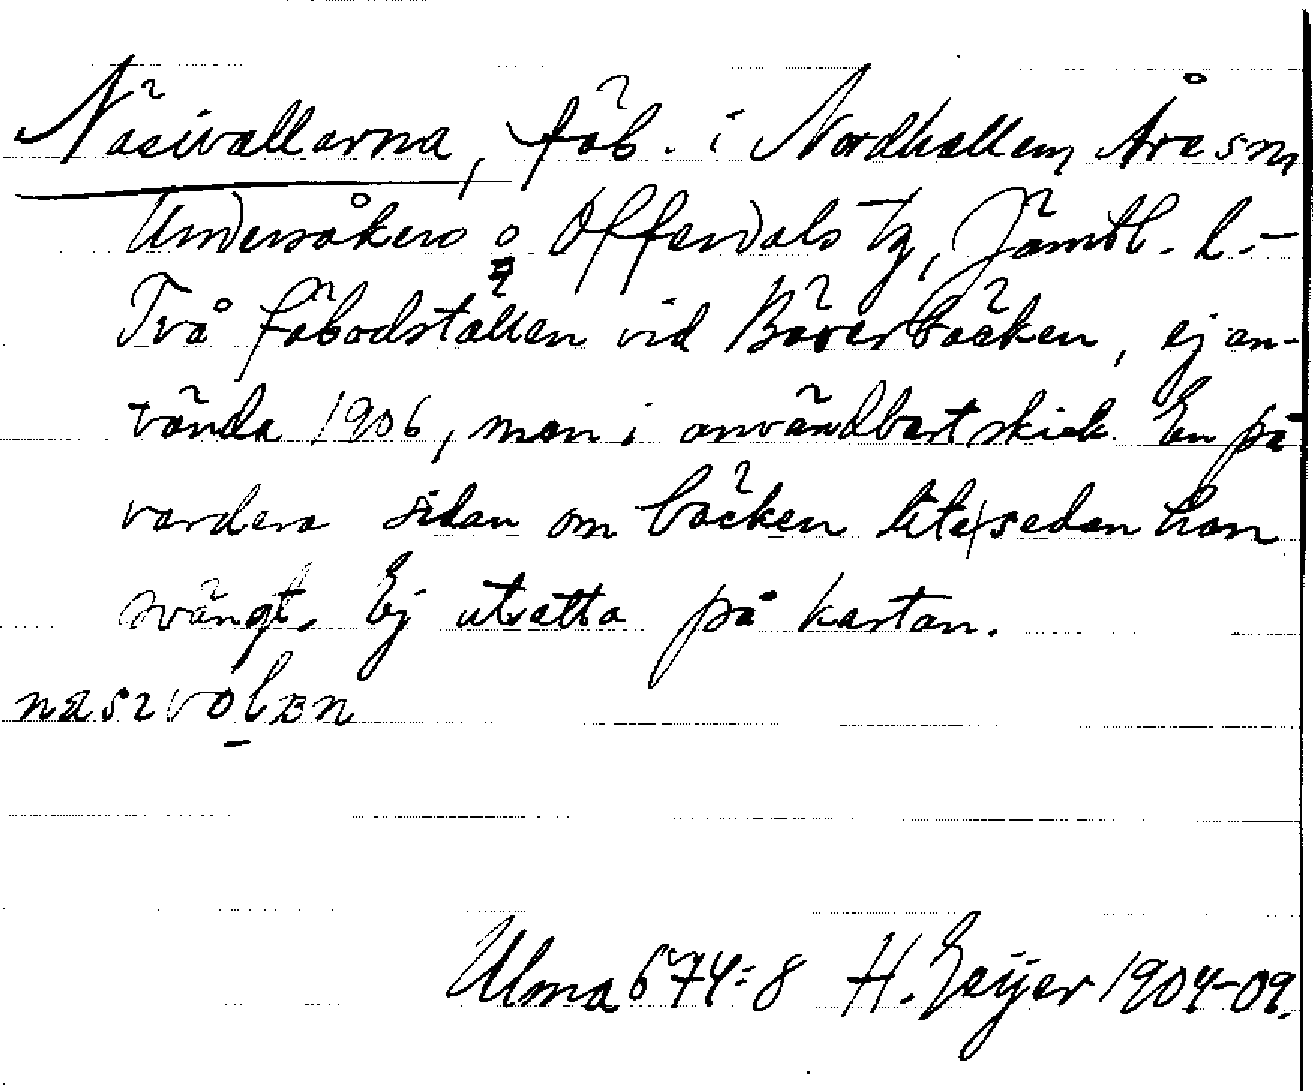 Näsivallarna, fäb. i Nordhallen, Åre sn,
Undersåkers o Offerdals tg, Jämtl. l. –
Två fäbodställen vid Bäverbäcken, ej an-
vända 1906, men i användbart skick. En på
vardera sidan om bäcken litet sedan han
svängt. Ej utsatta på kartan.
näsɩvolɐn
Ulma 674:8 H. Geijer 1904-09.